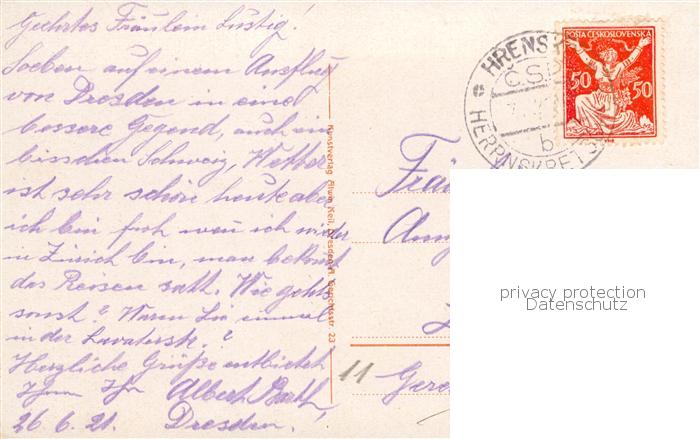 Geehrtes Fräulein Lustig!
Soeben auf einem Ausflug
von Dresden in eine
bessere Gegend, auch ein
bisschen Schweiz, Wetter
ist sehr schön heute aber
ich bin froh wen ich wieder
in Zürich bin, man bekomt
das Reisen satt. Wie gehts
sonst? Waren Sie einmal
in der Lavaterstr.?
Herzliche Grüße entbietet
Ihnen Ihr Albert Barth!
26.6.21. Dresden!
Kunstverlag Alwin Keil, Dresden A. Gerichtsstr. 23
HRENSK
Č.S.
b
HERRNSKRETSCH
POŠTA ČESKOSLOVENSKA
50 50
Frä
11
privacy protection
Datenschutz